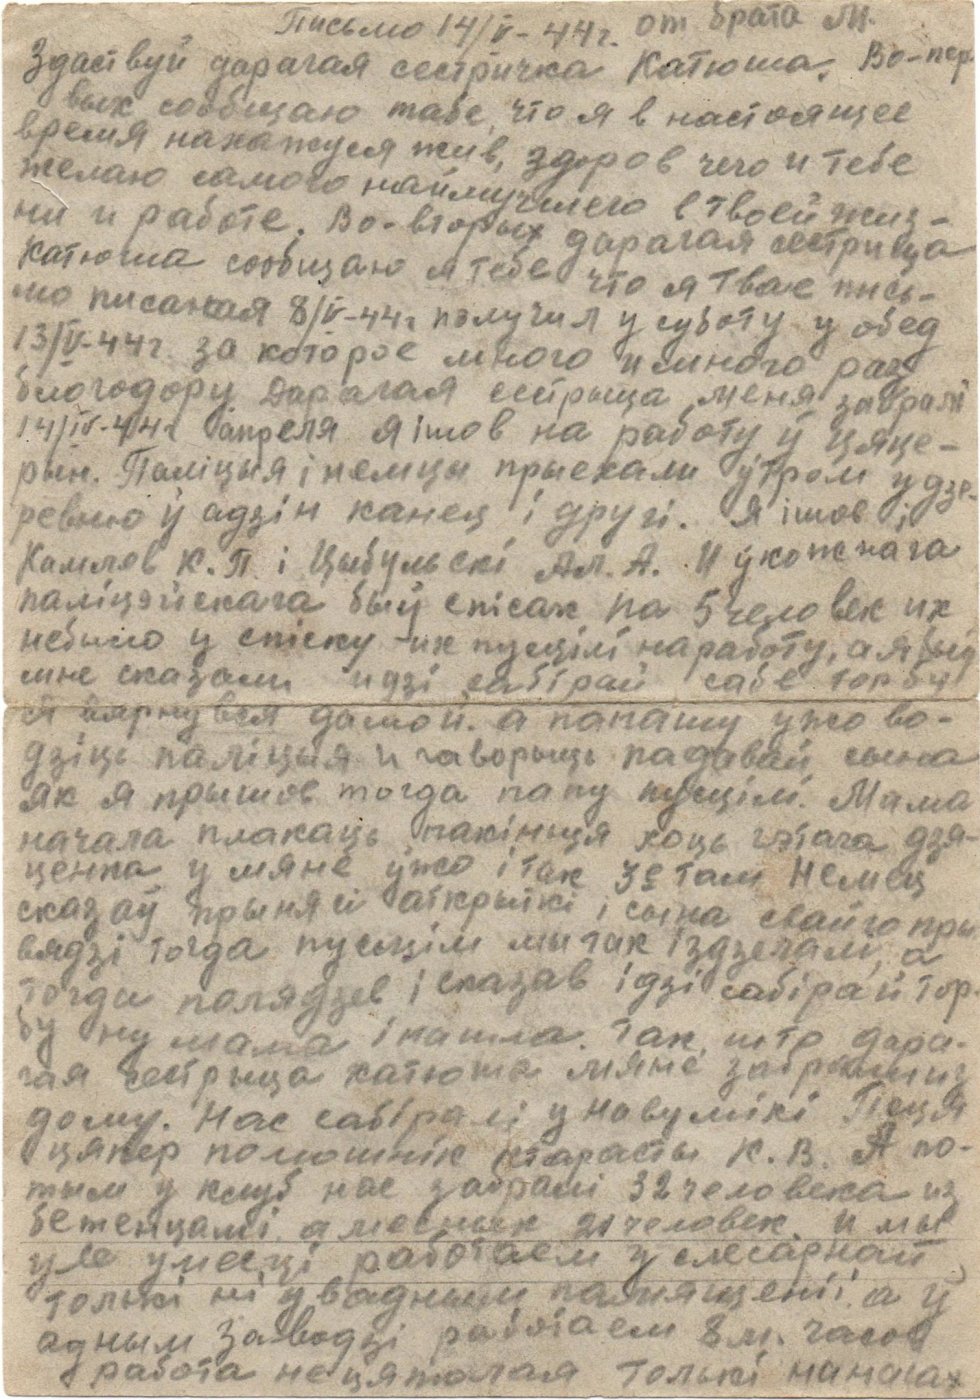 Письмо 14/V-44г. от брата М.
Здаствуй дарагая сестричка Катюша. Во-пер-
вых сообщаю табе, что я в настоящее
время нахажуся жив, здоров чего и тебе
желаю самого наилучшего в твоей жиз-
ни и работе. Во-вторых дарагая сестрица
Катюша сообщаю я тебе что я твае пись-
мо писаная 8/V-44г получил у суботу у обед
13/V-44г. за которое много и много раз
благодору. Дарагая сестрыца меня забралі
14/IV-44г апреля я ішов на работу ў Цяце-
рын. Паліцыя і немцы прыехали ўтром у дзе-
ревню ў адзін канец і другі. Я ішов і
Камлев К.П. і Цыбульскі Ал.А. И ў кожнага
паліцэйскага быў спісак па 5 человек их
небыло у спіску их пусцілі наработу, а я быў
мне сказали идзі сабірай сабе торбу
я вярнувся дамой. а папашу ужо во-
дзіць паліцыя и гаворыць падавай сына
як я прышов тогда папу пусцілі. Мама
начала плакаць пакіньця хоць гэтага дзя-
ценка у мяне ужо і так 3е там Немец
сказаў прыняй аткрыткі і сына свайго пры
вядзі тогда пусцім мы так ізделали, а
тогда полядзев і сказав ідзі сабірай тор-
бу ну мама і пашла. Так што дара-
гая сестрыца катюша мяне забрали из
дому. Нас сабіралі у Новумлікі Пеця
цяпер помошнік старасты К.В. А по-
тым у клуб нас забралі 32 человека из
беженцамі. а месных 21 человек. и мы
усе умесці работаем у слесарнай
толькі ні у вадным памяшчэнії а ў
адным заводзі работаем 8 м. часов
работа нецяжолая толькі на нагах